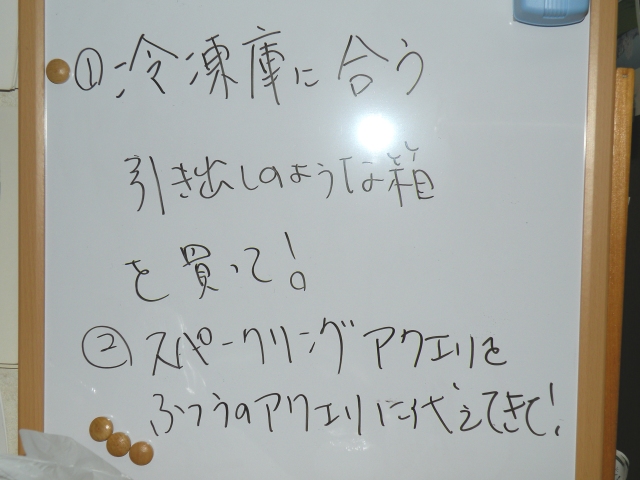 ①冷凍庫に合う
引き出しのような箱
を買って!
②スパークリングアクエリを
ふつうのアクエリに代えてきて!